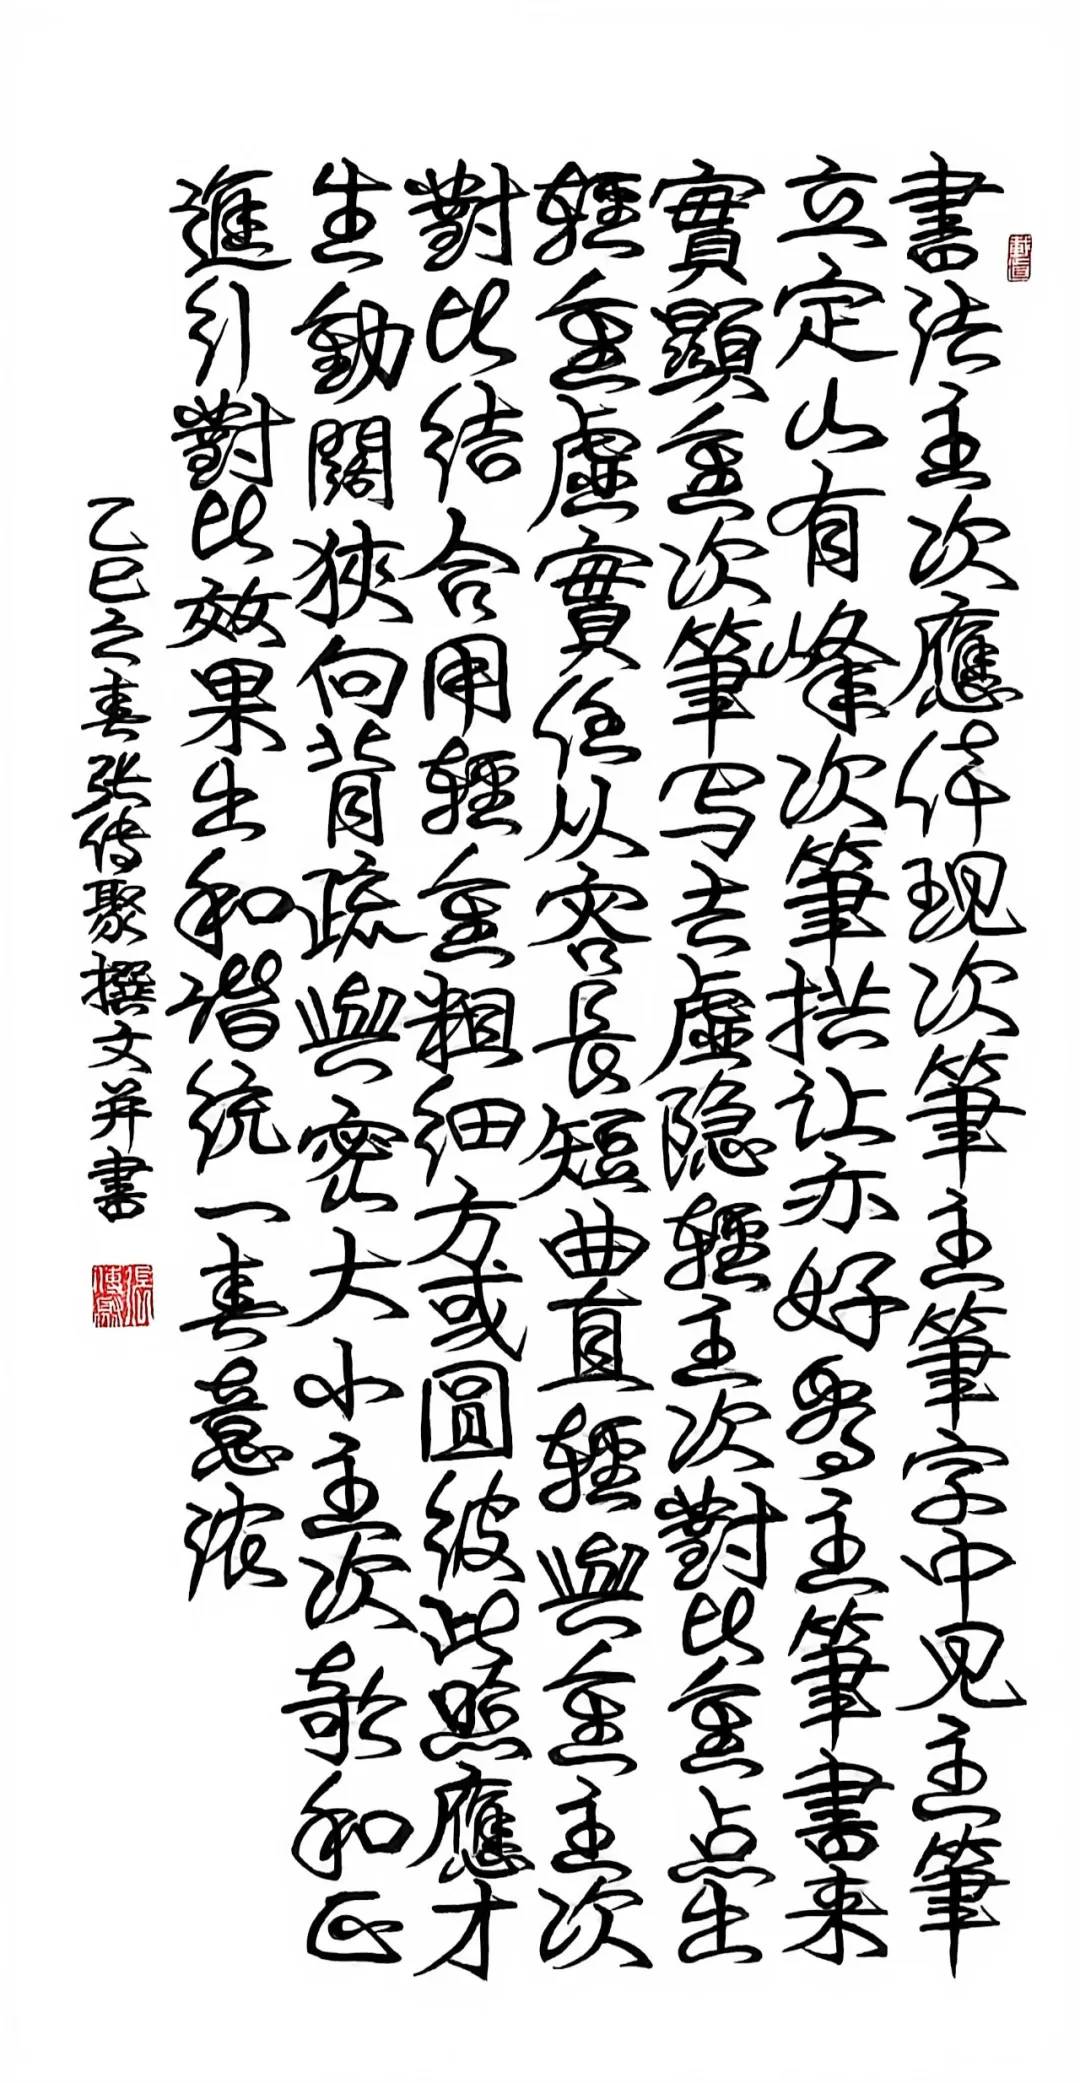 書法主次應体现次筆主筆字中見主筆
立定山有峰次筆拱让亦好為主筆書来
實顯重次筆写去虚隐輕主次對比重点出
輕重虚實任从容長短曲直輕與重主次
對比結合用輕重粗细方或圓彼此照應才
生動闊狹向背疏與密大小主次欹和正
進引對比效果出和谐统一春意浓
乙巳之春张传聚撰文并書